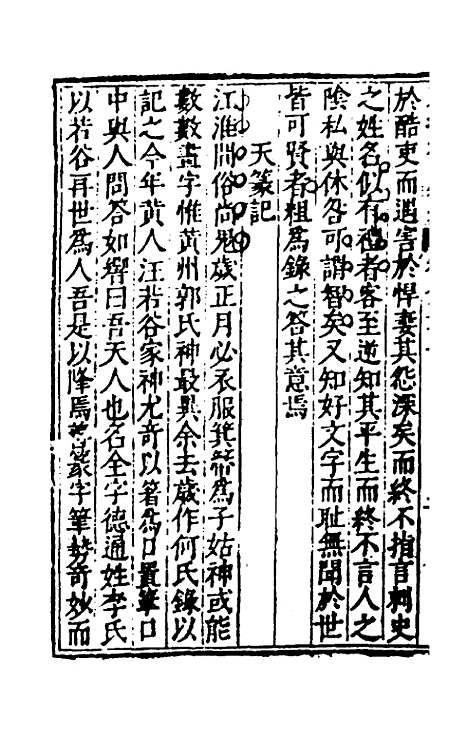 於酷吏而遇害於悍妻其怨深矣而終不指言刺史
之姓名似有禮者客至逆知其平生而終不言人之
陰私與休咎可謂智矣又知好文字而耻無聞於世
皆可賢者粗爲錄之答其意焉
天篆記
江淮間俗尚鬼歲正月必衣服箕箒爲子姑神或能
數數畫字惟黃州郭氏神最異余去歲作何氏錄以
記之今年黃人汪若谷家神尤奇以箸爲口置筆口
中與人問答如響曰吾天人也名全字德通姓李氏
以若谷再世爲人吾是以降焉著篆字筆勢奇妙而